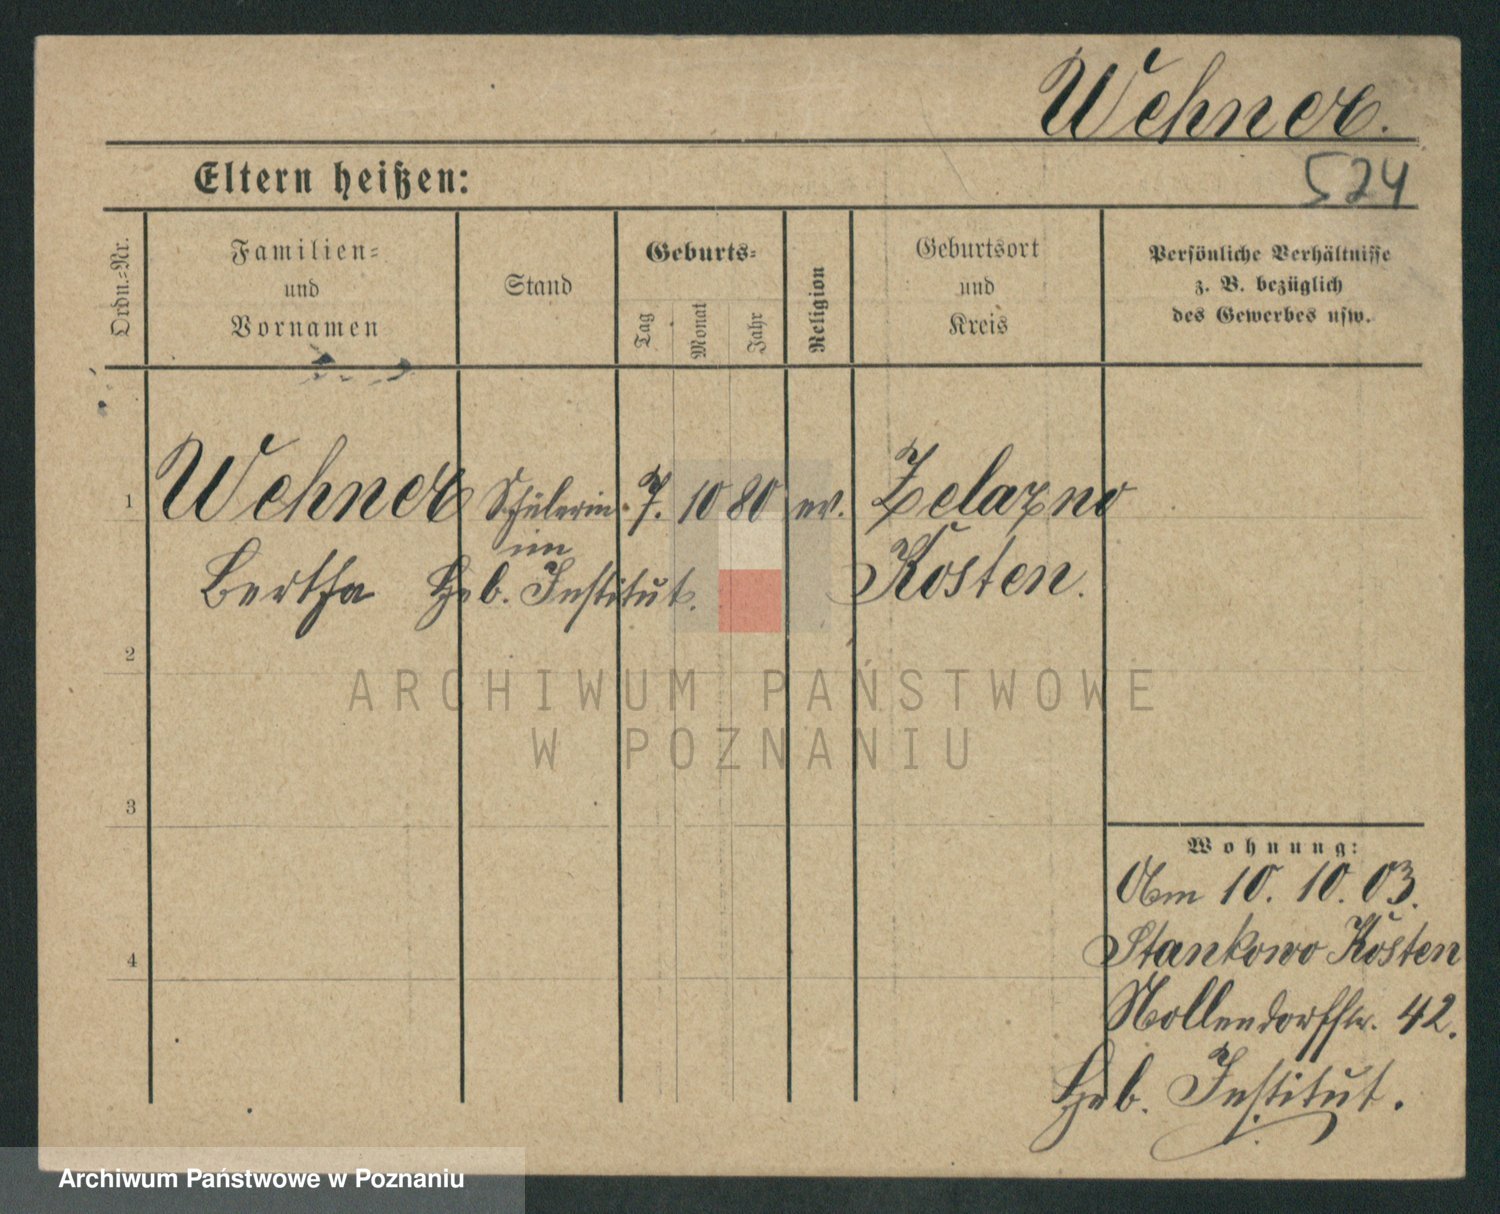 Wehner.
Eltern heißen:
524
Ordn.=Nr.
Familien=
und
Vornamen
Stand
Geburts=
Tag
Monat
Jahr
Religion
Geburtsort
und
Kreis
Persönliche Verhältnisse
z. B. bezüglich
des Gewerbes usw.
1
Wehner Schülerin 7. 10 80 ev. Zelazno
im
Bertha Heb. Institut. Kosten.
2
ARCHIWUM PAŃSTWOWE
W POZNANIU
3
Wohnung:
Am 10. 10. 03.
4
Stankowo Kosten
Nollendorfstr. 42.
Heb. Institut.
Archiwum Państwowe w Poznaniu